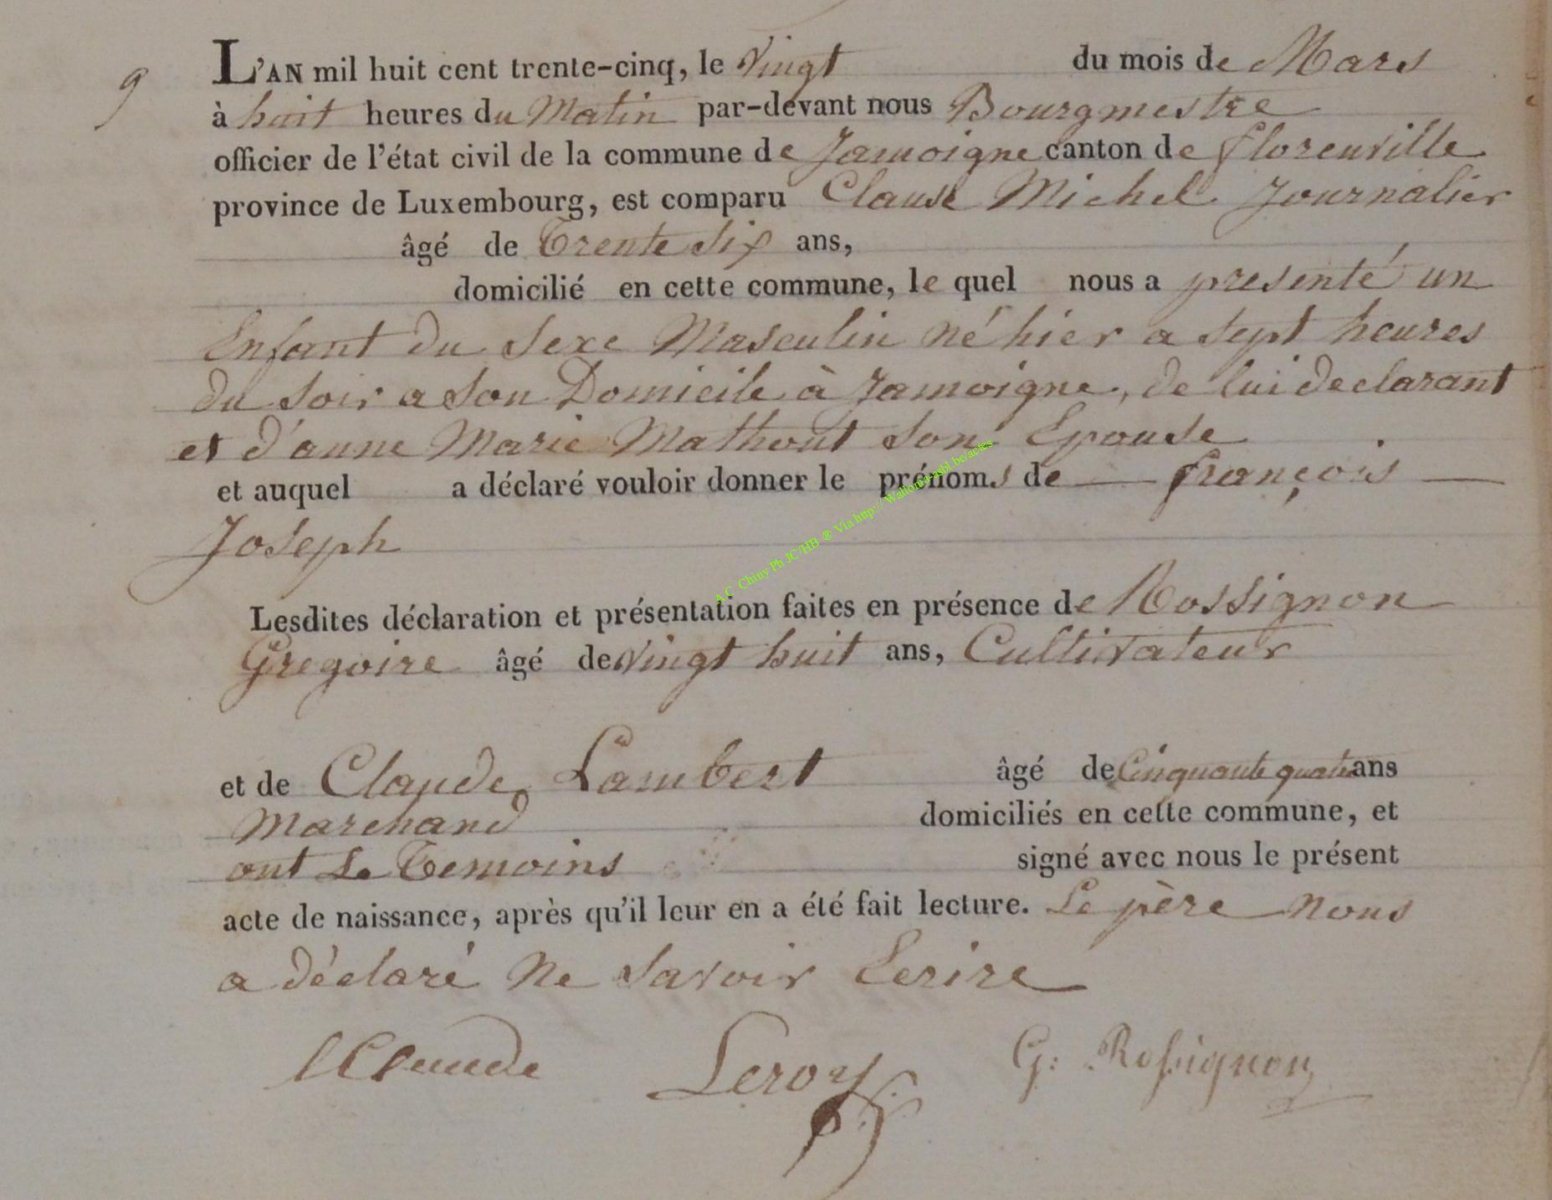 9
L'AN mil huit cent trente-cinq, le Vingt du mois de Mars
à huit heures du Matin par-devant nous Bourgmestre
officier de l'état civil de la commune de Jamoigne canton de florenville
province de Luxembourg, est comparu Clause Michel Journalier
âgé de Trente Six ans,
domicilié en cette commune, le quel nous a presenté un
Enfant du Sexe Masculin né hier a sept heures
du Soir a Son Domicile à Jamoigne, de lui declarant
et d'anne Marie Mathout Son Epouse
et auquel a déclaré vouloir donner le prénoms de françois
Joseph
Lesdites déclaration et présentation faites en présence de Rossignon
Gregoire âgé de Vingt huit ans, Cultivateur
et de Claude Lambert âgé de Cinquante quatre ans
Marchand domiciliés en cette commune, et
ont Le Temoins signé avec nous le présent
acte de naissance, après qu'il leur en a été fait lecture. Le père nous
a déclaré Ne Savoir Ecrire
lClaude Leroy G: Rossignon
A.C. Chiny Ph JC/HB ® Via http: